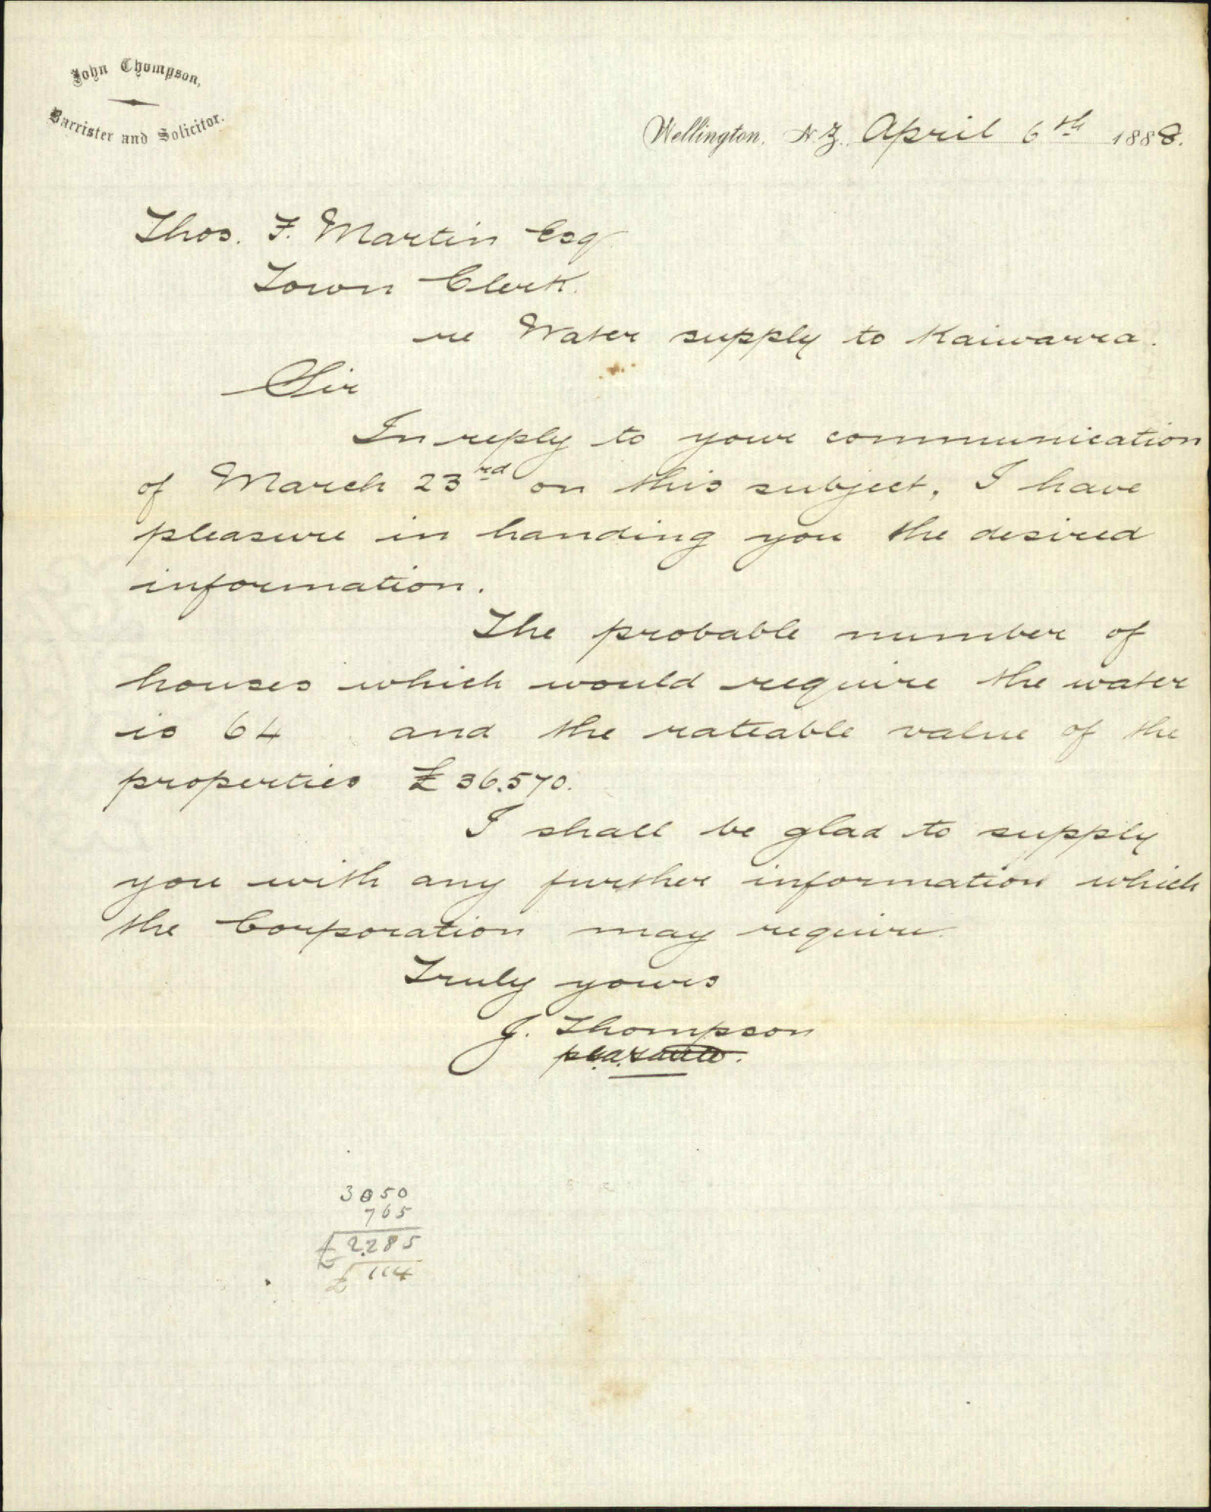 John Thompson,
Barrister and Solicitor.
Wellington, N.Z. April 6th 1888.
Thos. F. Martin Esq
Town Clerk.
re Water supply to Kaiwarra.
Sir
In reply to your communication
of March 23rd on this subject, I have
pleasure in handing you the desired
information.
The probable number of
houses which would require the water
is 64 and the rateable value of the
properties £36.570.
I shall be glad to supply
you with any further information which
the Corporation may require.
Truly yours
J. Thompson
3050
765
£2.285
£114